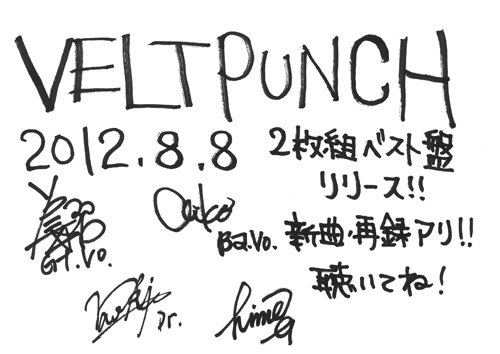 VELTPUNCH
2012.8.8
2枚組ベスト盤
リリース!!
Gt.Vo.
Aiko
Ba.Vo.
新曲・再録アリ!!
聴いてね!
Dr.